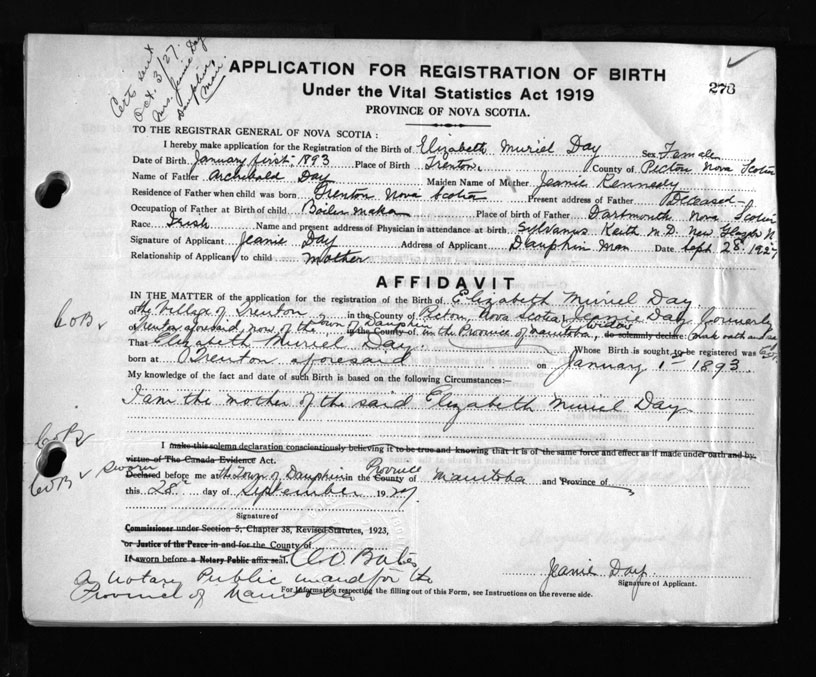 Certs sent
Oct. 3/27.
Mrs. Jeanie Day
Dauphin,
Man.
APPLICATION FOR REGISTRATION OF BIRTH
276
Under the Vital Statistics Act 1919
PROVINCE OF NOVA SCOTIA.
TO THE REGISTRAR GENERAL OF NOVA SCOTIA :
I hereby make application for the Registration of the Birth of Elizabeth Muriel Day Sex Female
Date of Birth January first. 1893 Place of Birth Trenton. County of Pictou Nova Scotia
Name of Father Archibald Day Maiden Name of Mother Jeanie Kennedy
Residence of Father when child was born Trenton Nova Scotia Present address of Father Deceased
Occupation of Father at Birth of child Boiler maker Place of birth of Father Dartmouth Nova Scotia
Race Irish Name and present address of Physician in attendance at birth Sylvanus Keith M.D. New Glasgow N
Signature of Applicant Jeanie Day Address of Applicant Dauphin Man Date Sept 28th 1927
Relationship of Applicant to child Mother
AFFIDAVIT
IN THE MATTER of the application for the registration of the Birth of Elizabeth Muriel Day
of the Village of Trenton, in the County of Pictou, Nova Scotia, I Jeanie Day formerly
of Trenton aforesaid, now of the town of Dauphin in the County of, in the Province of Manitoba, widow do solemnly declare: make oath and say
COB
That Elizabeth Muriel Day Whose Birth is sought to be registered was
born at Trenton aforesaid on January 1st 1893.
My knowledge of the fact and date of such Birth is based on the following Circumstances:—
I am the mother of the said Elizabeth Muriel Day.
I make this solemn declaration conscientiously believing it to be true and knowing that it is of the same force and effect as if made under oath and by
COB
virtue of The Canada Evidence Act.
COB sworn
Declared before me at the Town of Dauphin in the County of Province Manitoba and Province of
this 28 day of September 1927
Signature of
Commissioner under Section 5, Chapter 38, Revised Statutes, 1923,
or Justice of the Peace in and for the County of
If sworn before a Notary Public affix seal. C O Bates
A Notary Public in and for the
Province of Manitoba
Jeanie Day
Signature of Applicant.
For Information respecting the filling out of this Form, see Instructions on the reverse side.